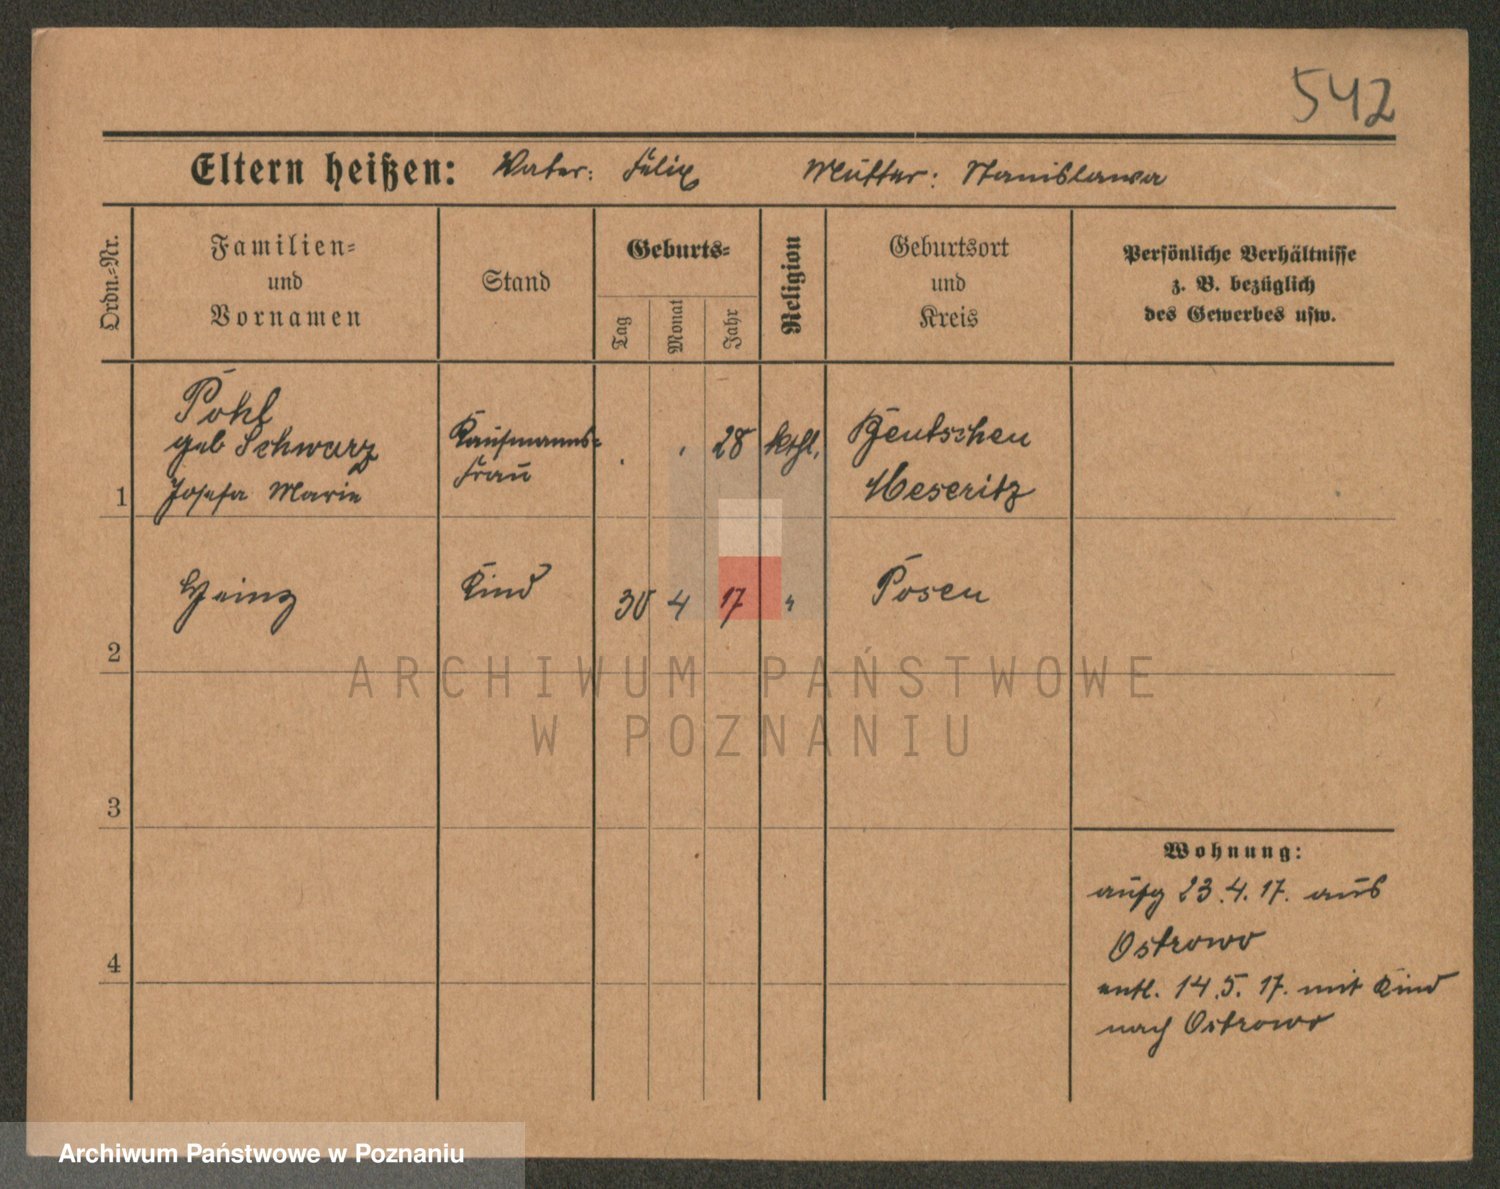 542
Eltern heißen: Vater: Felix Mutter: Stanislawa
Ordn.-Nr.
Familien-
und
Vornamen
Stand
Geburts-
Tag
Monat
Jahr
Religion
Geburtsort
und
Kreis
Persönliche Verhältnisse
z. B. bezüglich
des Gewerbes usw.
1
Pohl
geb Schwarz
Josefa Marie
Kaufmanns-
frau
. . 28
kthl.
Bentschen
Meseritz
2
Heinz
Kind
30 4 17 "
Posen
3
4
Wohnung:
aufg 23.4.17. aus
Ostrowo
entl. 14.5.17. mit Kind
nach Ostrowo
ARCHIWUM PAŃSTWOWE
W POZNANIU
Archiwum Państwowe w Poznaniu